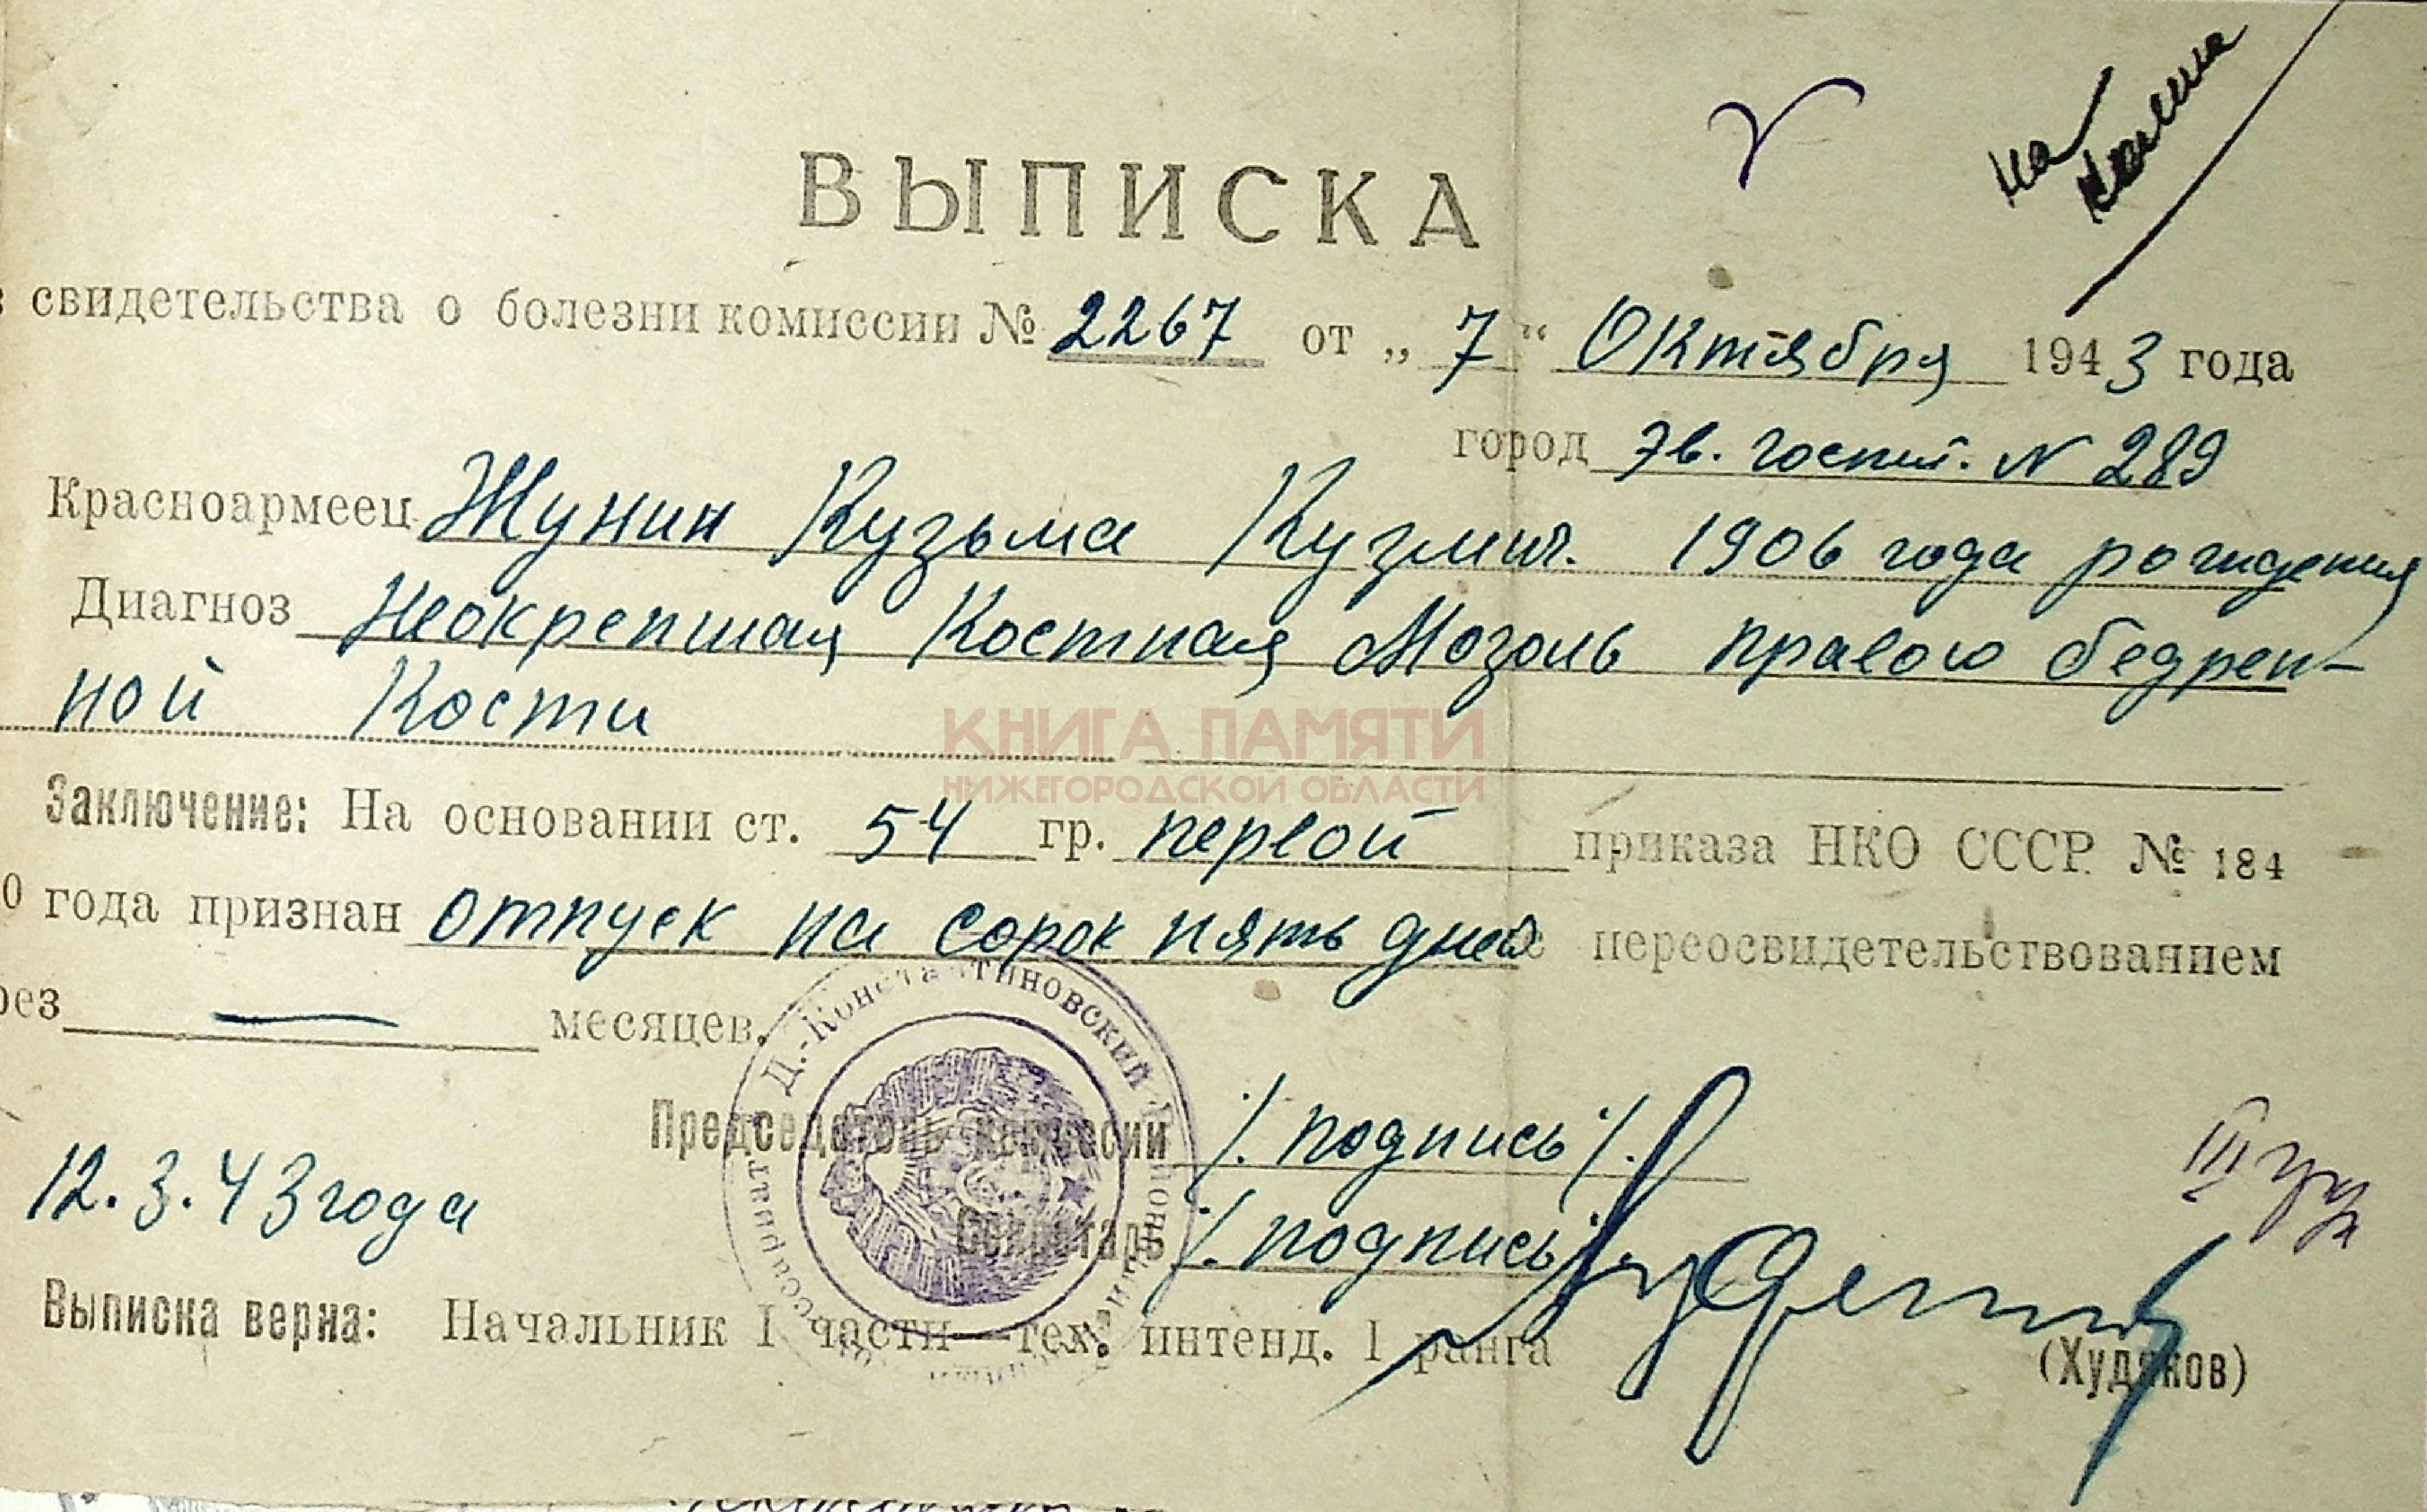 на
ВЫПИСКА
свидетельства о болезни комиссии № 2267 от „7“ Октября 1943 года
город Эв. госпит. N 289
Красноармеец Жунин Кузьма Кузмич. 1906 года рождения
Диагноз Неокрепшая Костная Мозоль правого бедрен-
ной Кости
КНИГА ПАМЯТИ
НИЖЕГОРОДСКОЙ ОБЛАСТИ
Заключение: На основании ст. 54 гр. первой приказа НКО СССР № 184
0 года признан отпуск на сорок пять дней с переосвидетельствованием
рез — месяцев.
Д.-Константиновский
Председатель комиссии /. подпись /.
12.3.43 года
Секретарь /. подпись
III
Выписка верна: Начальник I части—тех. интенд. 1 ранга
(Худяков)